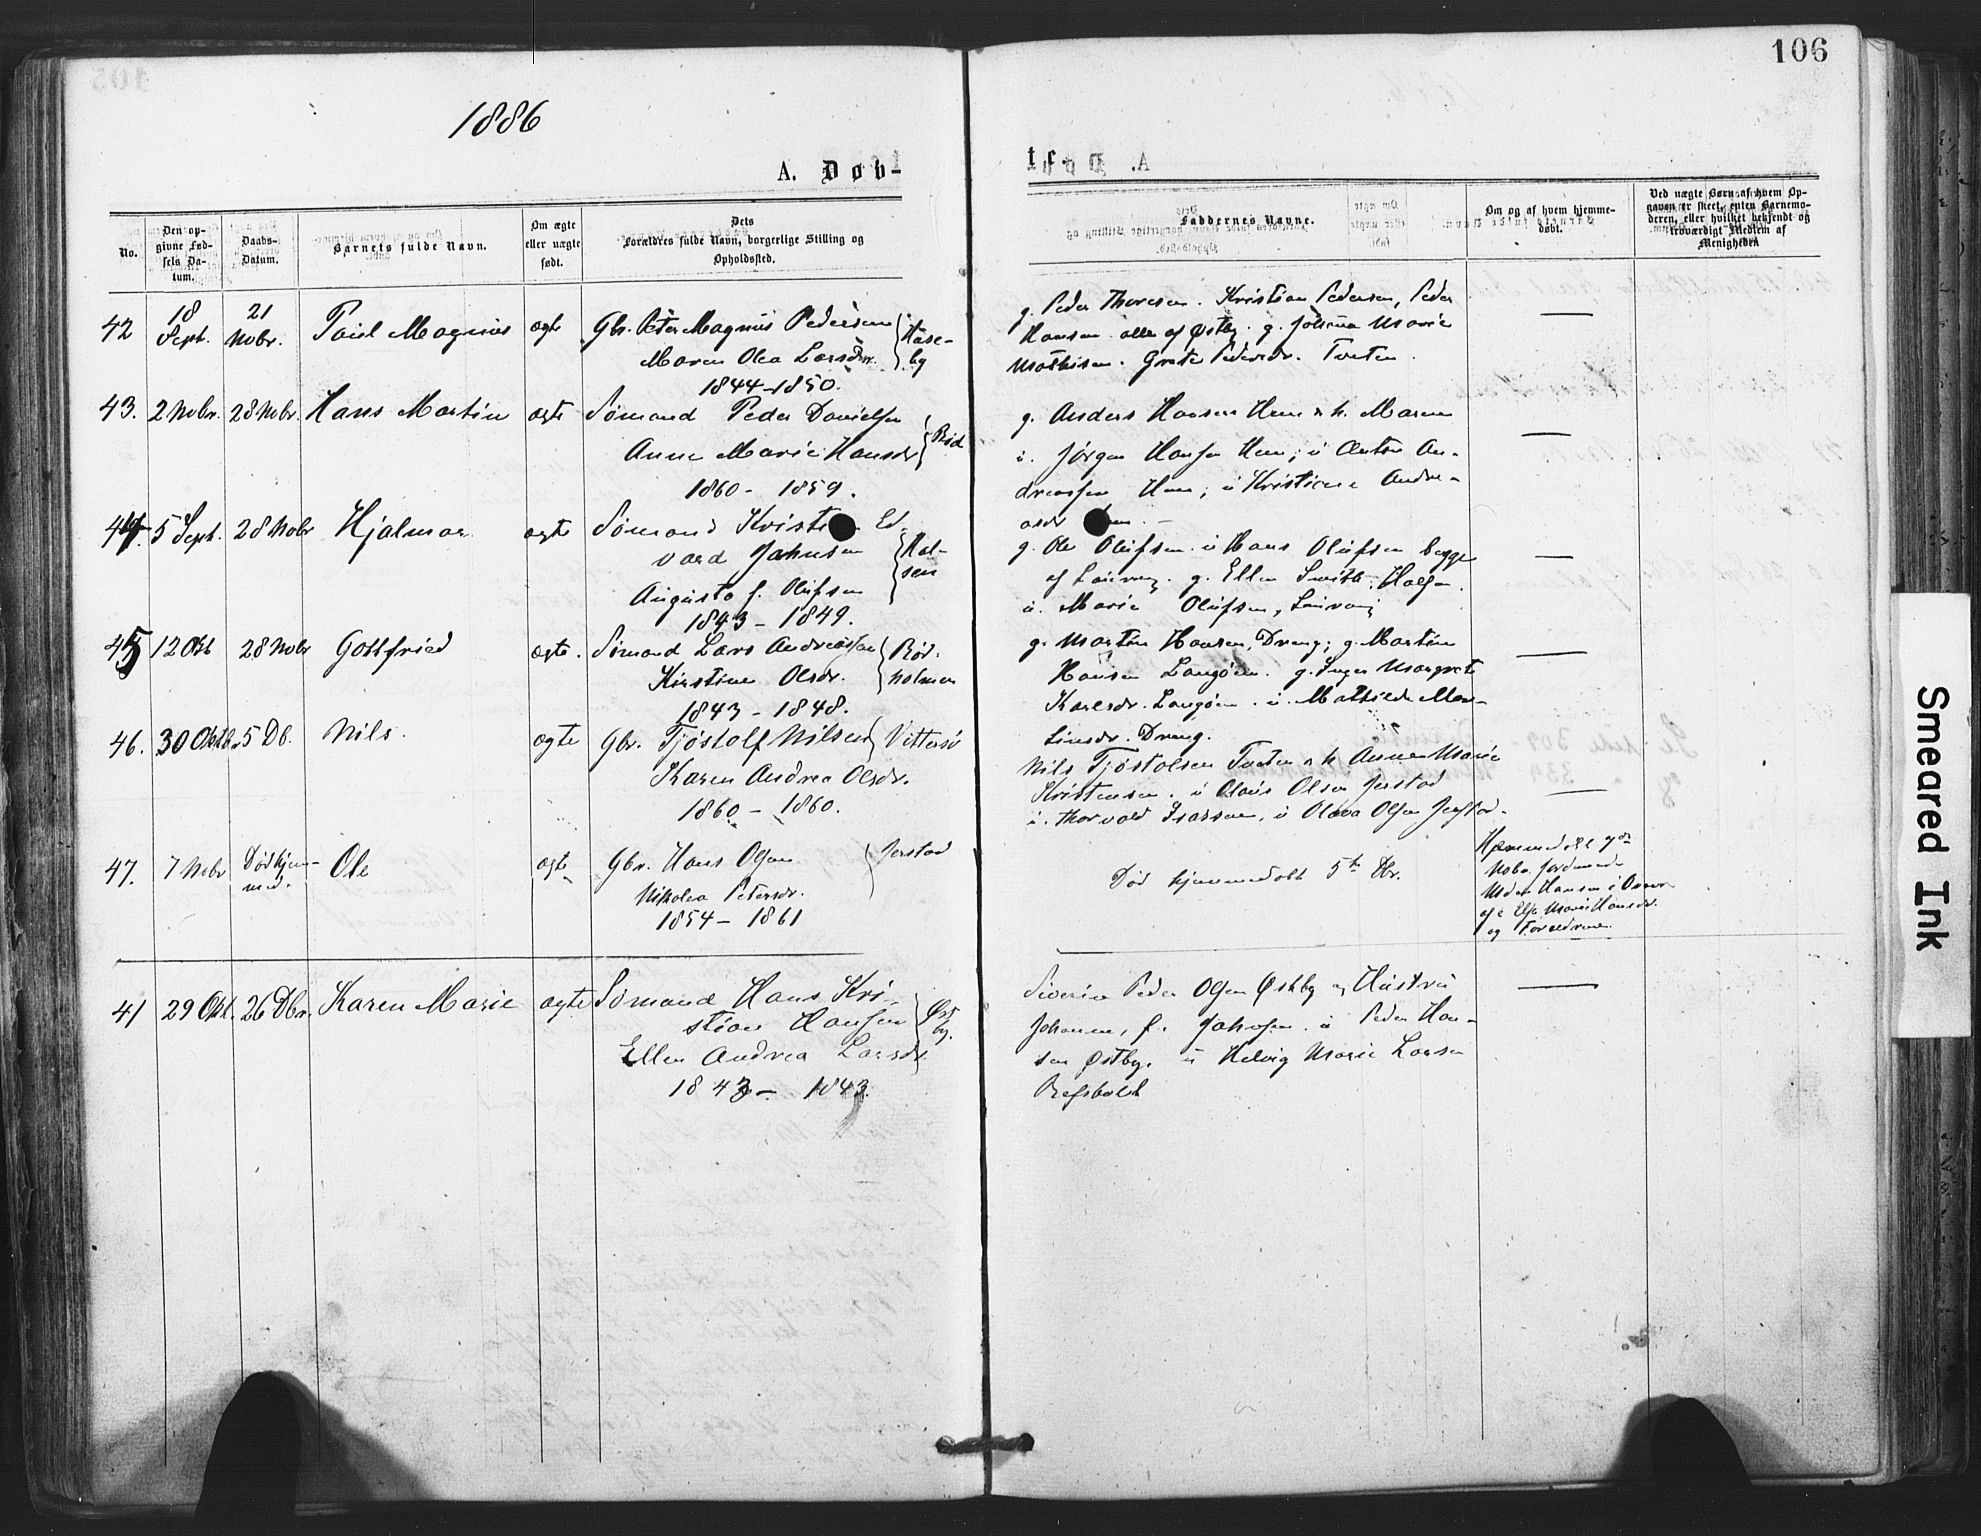 106
1886
A. Døb-
No.
Den op-
givne Fød-
sels Da-
tum.
Daabs-
Datum.
Barnets fulde Navn.
Om ægte
eller uægte
født.
Dets
Forældres fulde Navn, borgerlige Stilling og
Opholdsted.
Faddernes Navne.
Om og af hvem hjemme-
døbt.
Ved uægte Børn af hvem Op-
gaven er skeet, enten Barnemo-
deren, eller hvilket bekjendt og
troværdigt Medlem af
Menigheden
42
18
Sept.
21
Nobr.
Paul Magnus
ægte
Gbr. Peter Magnus Pedersen
Maren Olea Larsdr.
1844-1850.
g. Peder Thoresen. Kristian Pedersen, Peder
Hansen alle af Østby. g. Johanna Marie
Mathisen. Grete Pedersdr. Tveten.
43.
2 Nobr.
28 Nobr.
Hans Martin
ægte
Sømand Peder Danielsen
Anne Marie Hansdr
Rød
1860 - 1859.
g. Anders Hansen Hem & h. Maren
u. Jørgen Hansen Hem; u Anton An-
dreassen Hem; u Kristiane Andre-
asdr
44.
5 Sept.
28 Nobr
Hjalmar
ægte
Sømand Ed-
vard Johnsen
Augusta f. Olufsen
1843 - 1849.
g. Ole Olufsen. u Hans Olufsen begge
af g. Ellen Smith.
u. Marie Olufsen,
45
12 Okt
28 Nobr
Gottfried
ægte.
Sømand Lars Andreassen
Kirstine Olsdr.
Rød-
holmen
1843 - 1848.
g. Martin Hansen, Dreng; g. Martin
Hansen Langøen. g. Inger Margrete
Karlsdr. Langøen. u. Mathilde Mar-
tinsdr. Dreng.
46.
30 Oktbr
5 Db.
Nils.
ægte
Gbr. Tjøstolf Nilsen
Karen Andrea Olsdr.
Vittersø
1860 - 1860.
Nils Tjøstolsen Tveten & h. Anne Marie
Kristensen. u Olaus Olsen Jerstad
u. Thorvald Isaksen, u Olava Olsen Jerstad.
47.
7 Nobr
Død hjem-
med.
Ole
ægte
Gbr. Hans Olsen
Nikolea Petersdr.
Jerstad
1854 - 1861
Død hjemmedøbt 5te Dbr.
Hjemmedøbt
Nobr. Jordmod.
Hansen
af Else Marie Hansdr.
og Forældrene.
41
29 Okt.
26 Dbr.
Karen Marie
ægte
Sømand Hans Kri-
stian Hansen
Ellen Andrea Larsdr
Øst
by.
1843 - 1843.
Severin Peder Olsen Østby og Hustru
Johanne, f. Johnsen. u Peder Han-
sen Østby. u Helvig Marie Larsen
Refsholdt
Smeared Ink